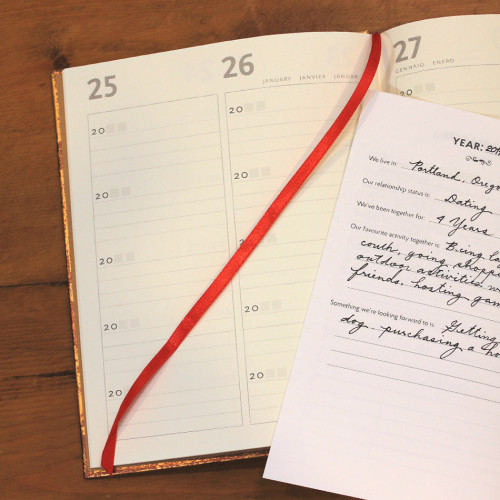 25
26
JANUARY JANVIER JANUAR
27
GENNAIO ENERO
20
20
20
20
20
20
20
20
20
20
20
YEAR: 20
We live in: Portland, Oregon
Our relationship status is: Dating
We've been together for: 4 Years
Our favourite activity together is: Being
couch, going
outdoor activities
friends, hosting
Something we're looking forward to is: Getting
dog, purchasing a